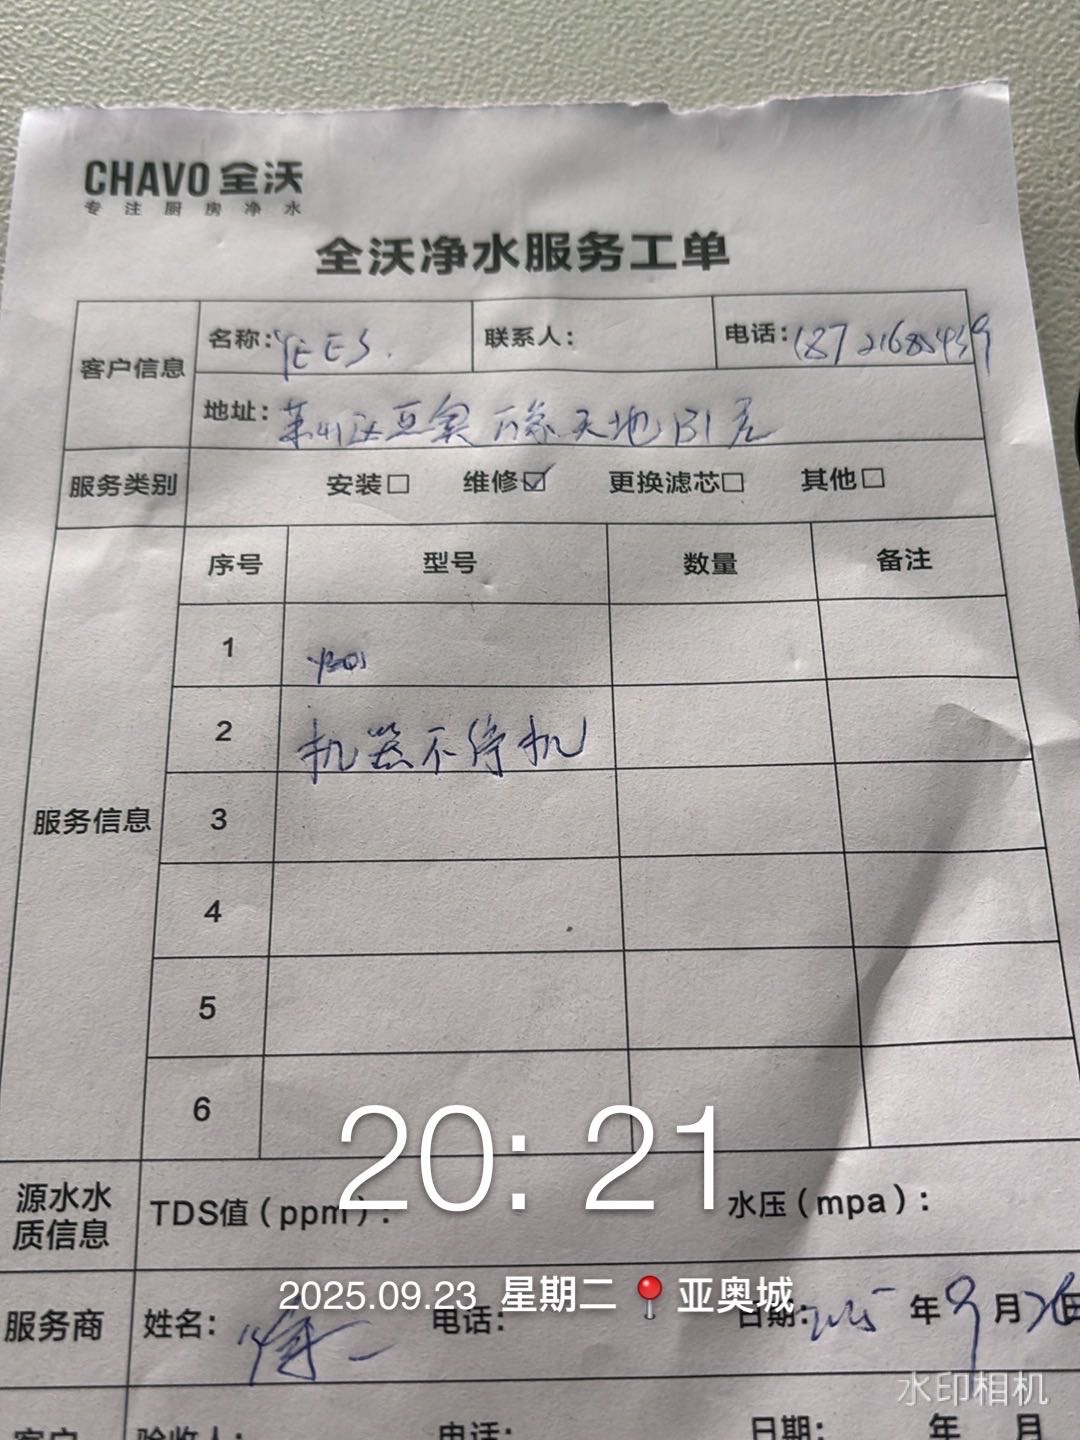 CHAVO 全沃
专注厨房净水
全沃净水服务工单
客户信息
名称: YEES.
联系人:
电话:
地址: 亚奥 天地B1层
服务类别
安装□ 维修☑ 更换滤芯□ 其他□
服务信息
序号 型号 数量 备注
1
2 机器不停机
3
4
5
6
20:21
源水水质信息
TDS值(ppm):
水压(mpa):
2025.09.23 星期二 📍亚奥城
服务商
姓名:
电话:
日期: 2025年9月 日
水印相机
客户
验收人:
电话:
日期: 年 月